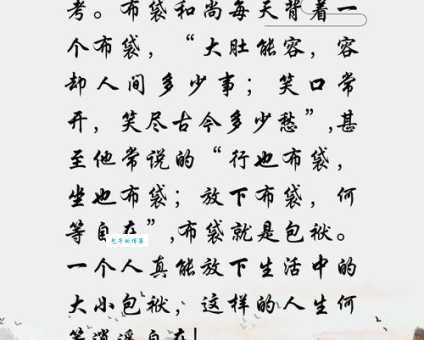 考。布袋和尚每天背着一
个布袋，“大肚能容，容
却人间多少事；笑口常
开，笑尽古今多少愁”,甚
至他常说的“行也布袋，
坐也布袋；放下布袋，何
等自在”,布袋就是包袱。
一个人真能放下生活中的
大小包袱，这样的人生何
等逍遥自在!